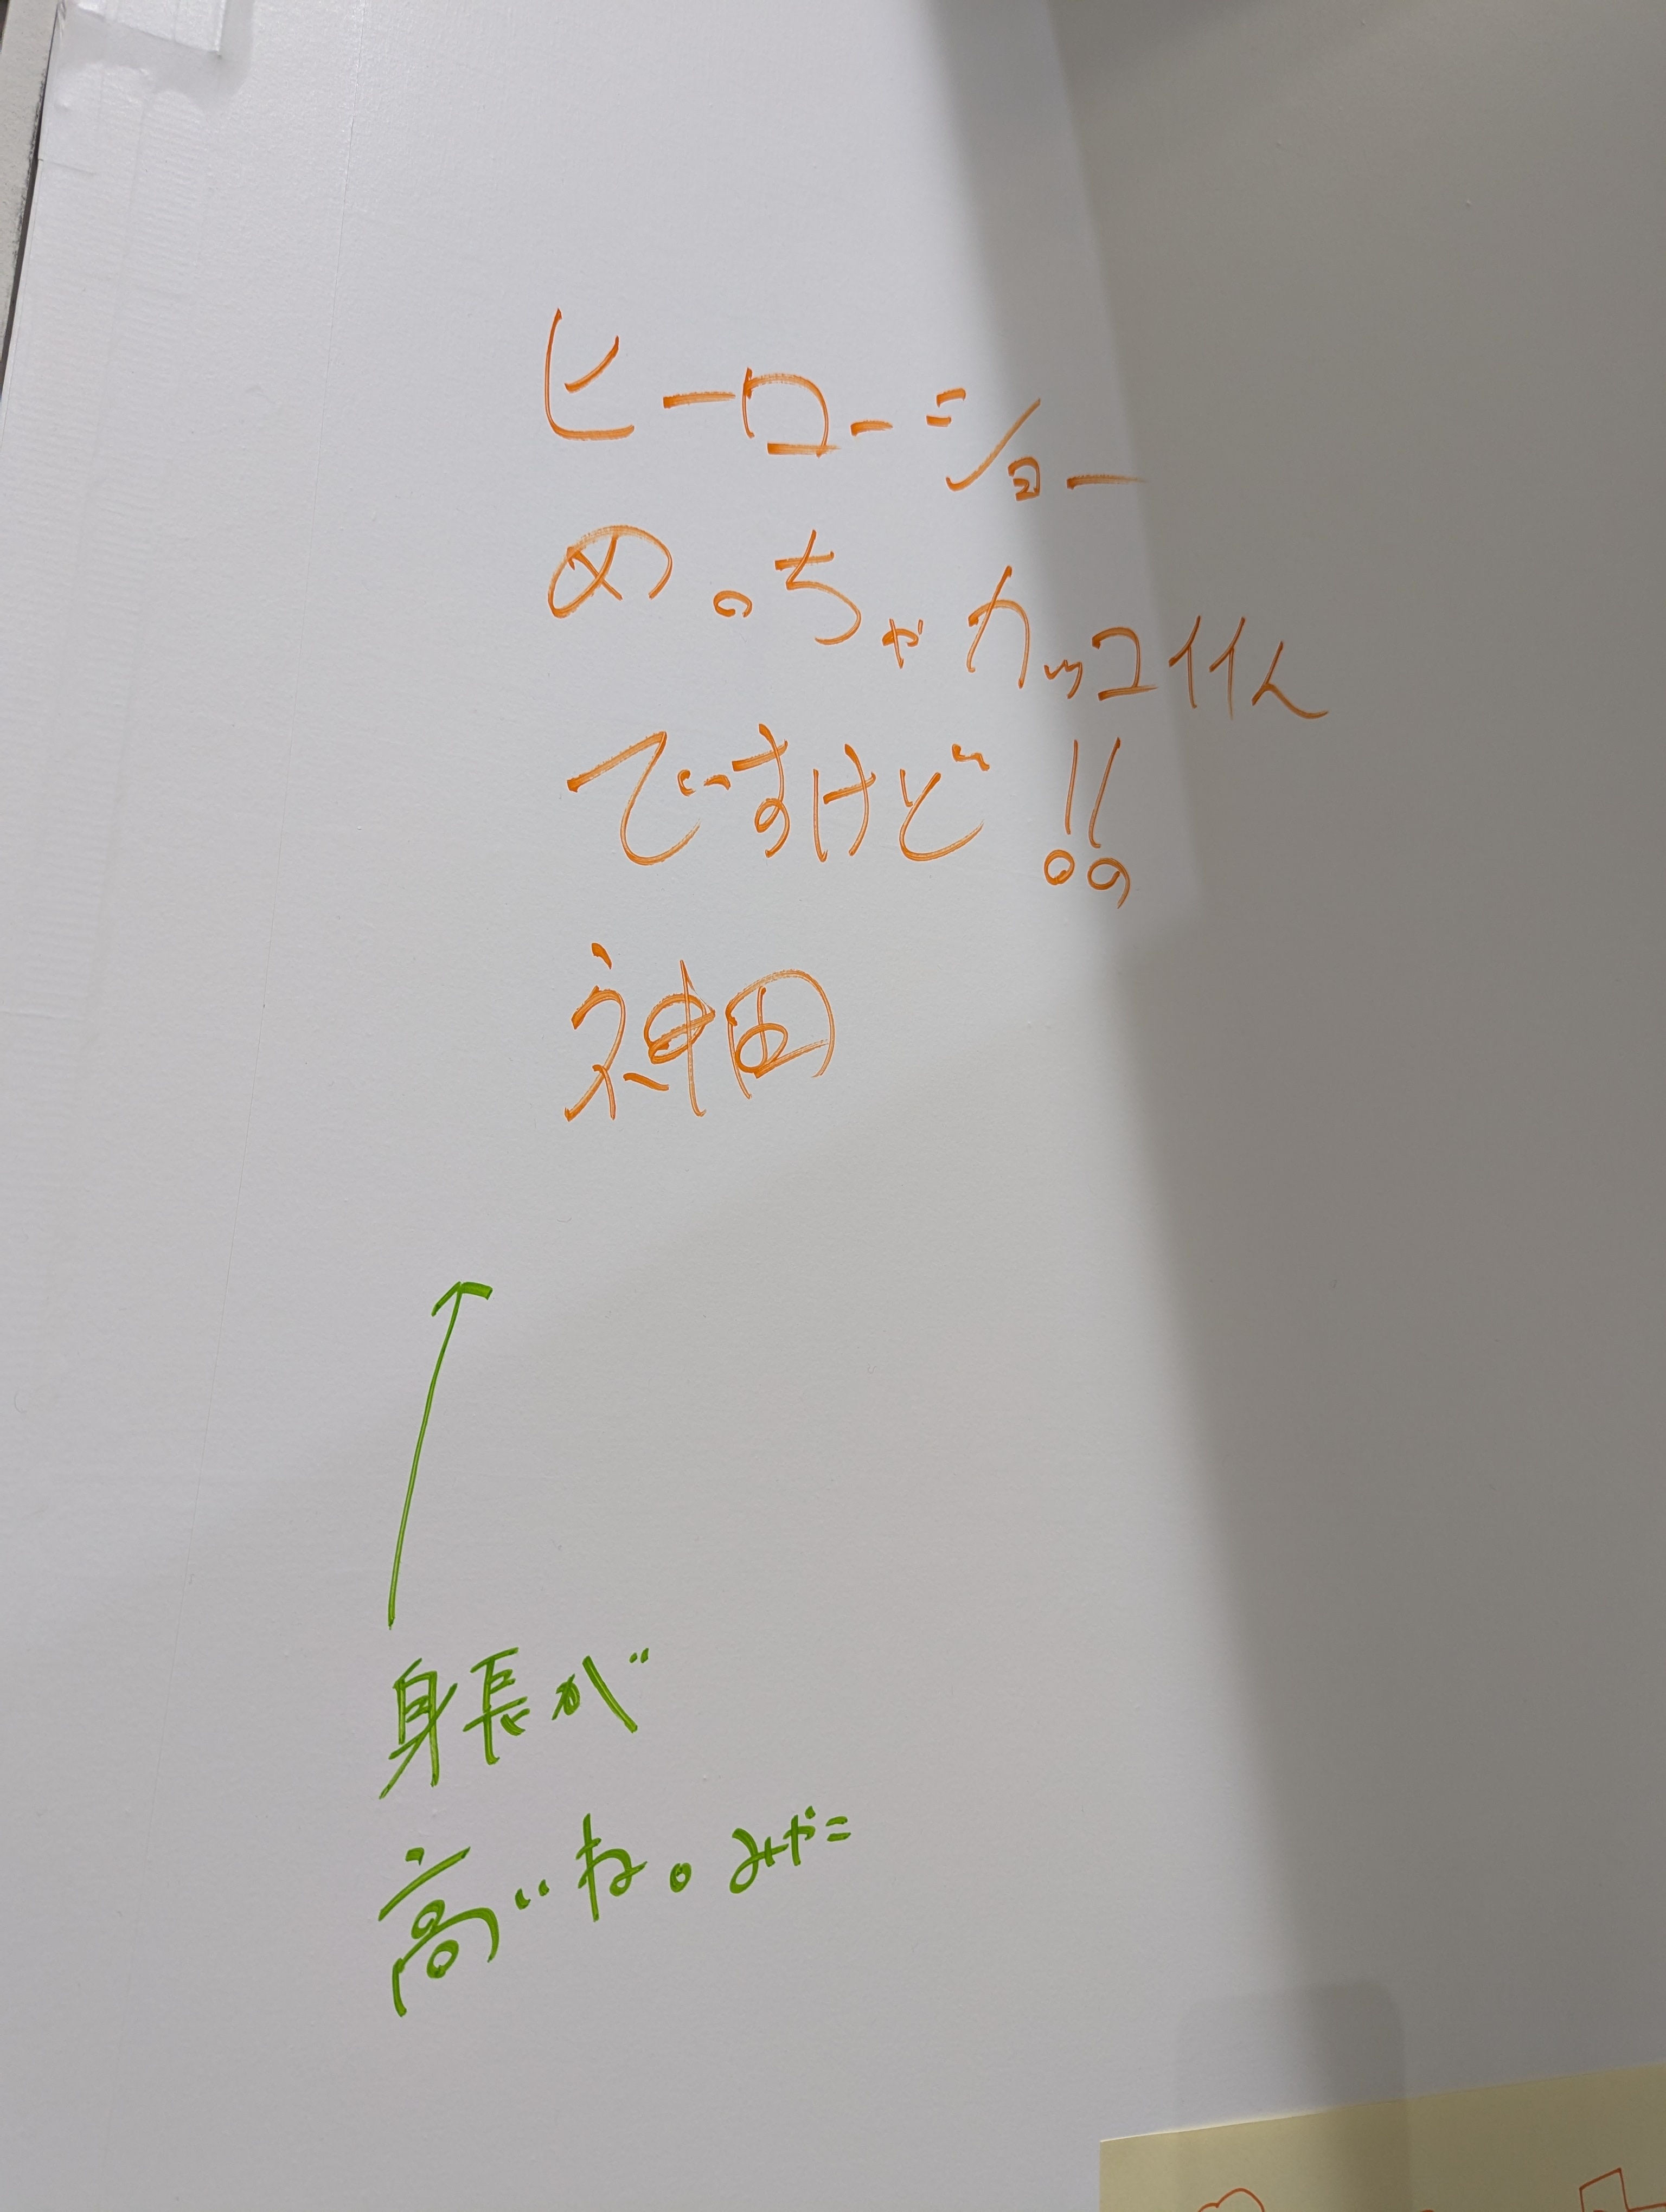 ヒーローショー
めっちゃカッコイイん
ですけど!!
神田
身長が
高いね。みやこ